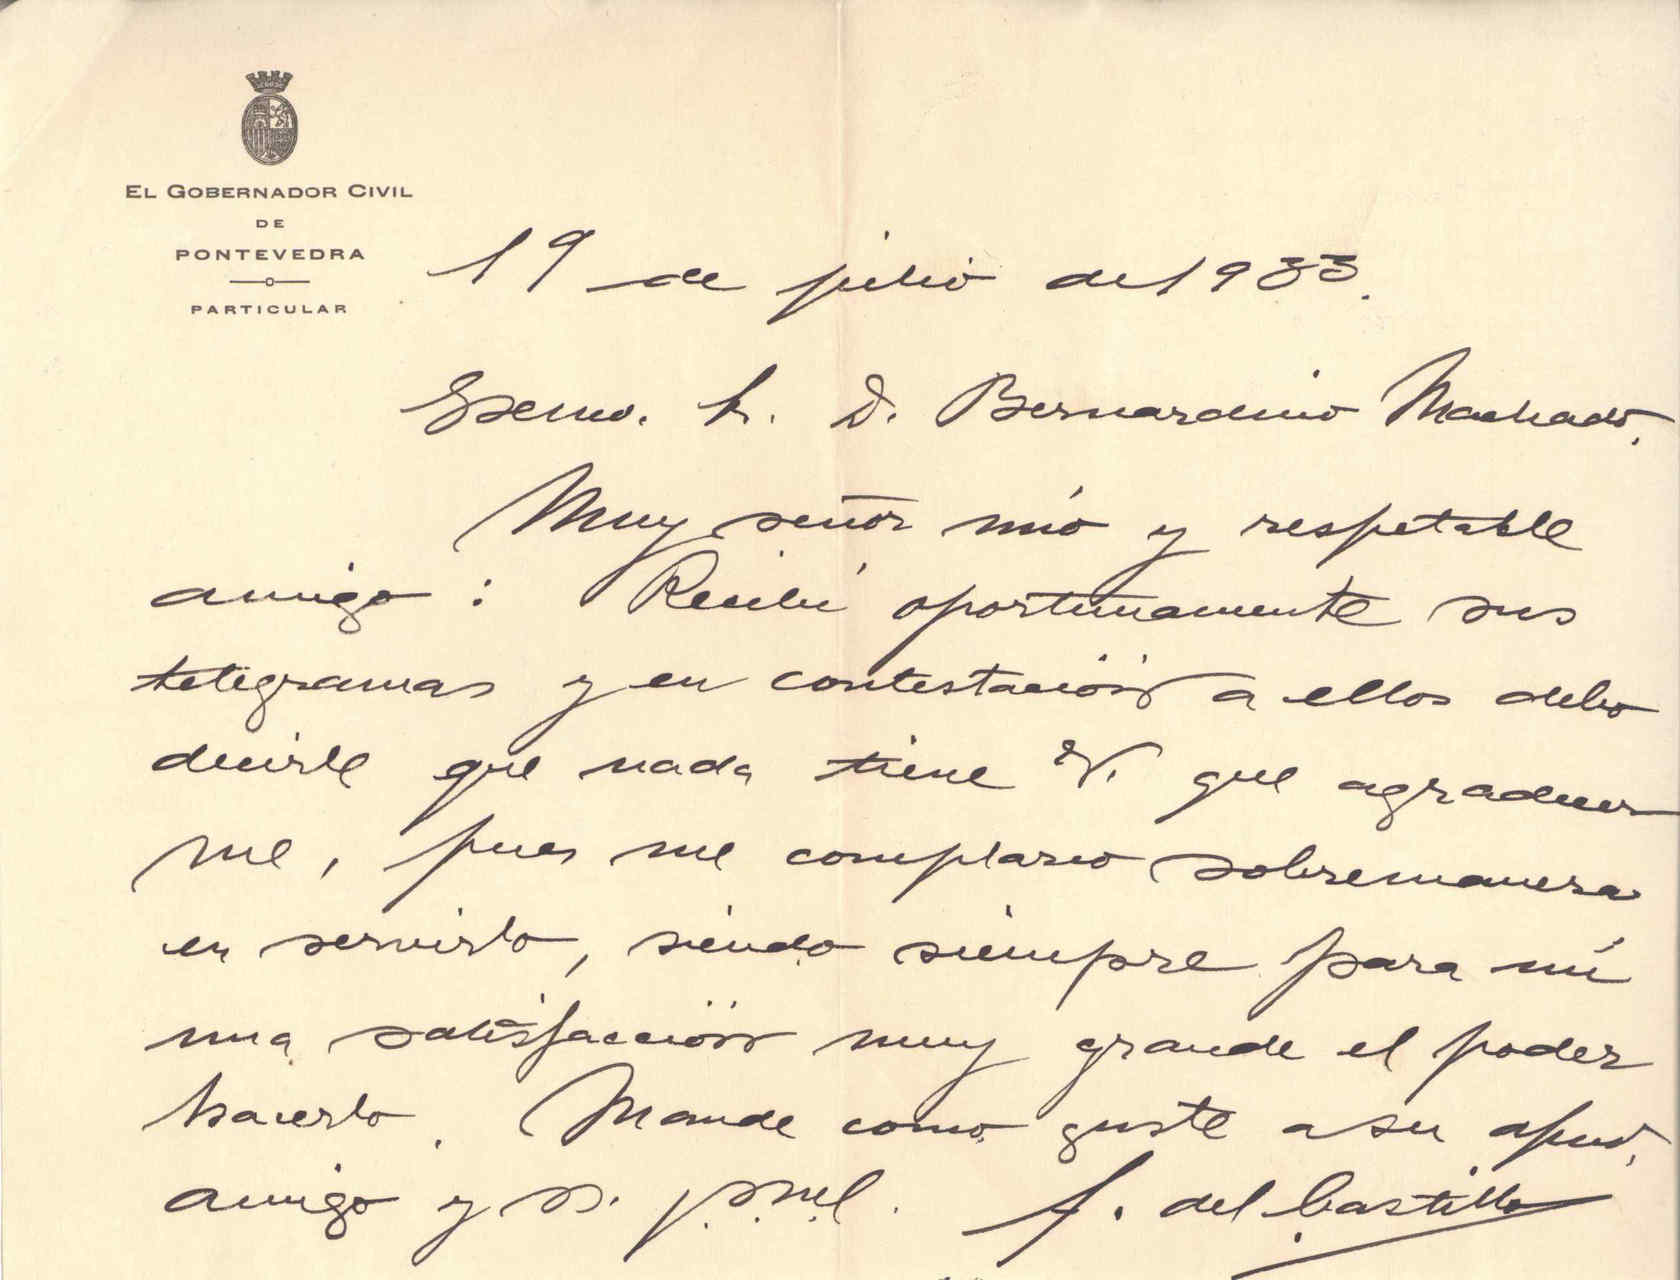 EL GOBERNADOR CIVIL
DE
PONTEVEDRA
PARTICULAR
19 de julio de 1933.
Excmo. Sr. D. Bernardino Machado.
Muy señor mío y respetable
amigo: Recibí oportunamente sus
telegramas y en contestación a ellos debo
decirle que nada tiene V. que agradecer
me, pues me complazco sobremanera
en servirlo, siendo siempre para mí
una satisfacción muy grande el poder
hacerlo. Mande como guste a su afmo.
amigo y s. s.
del Castillo